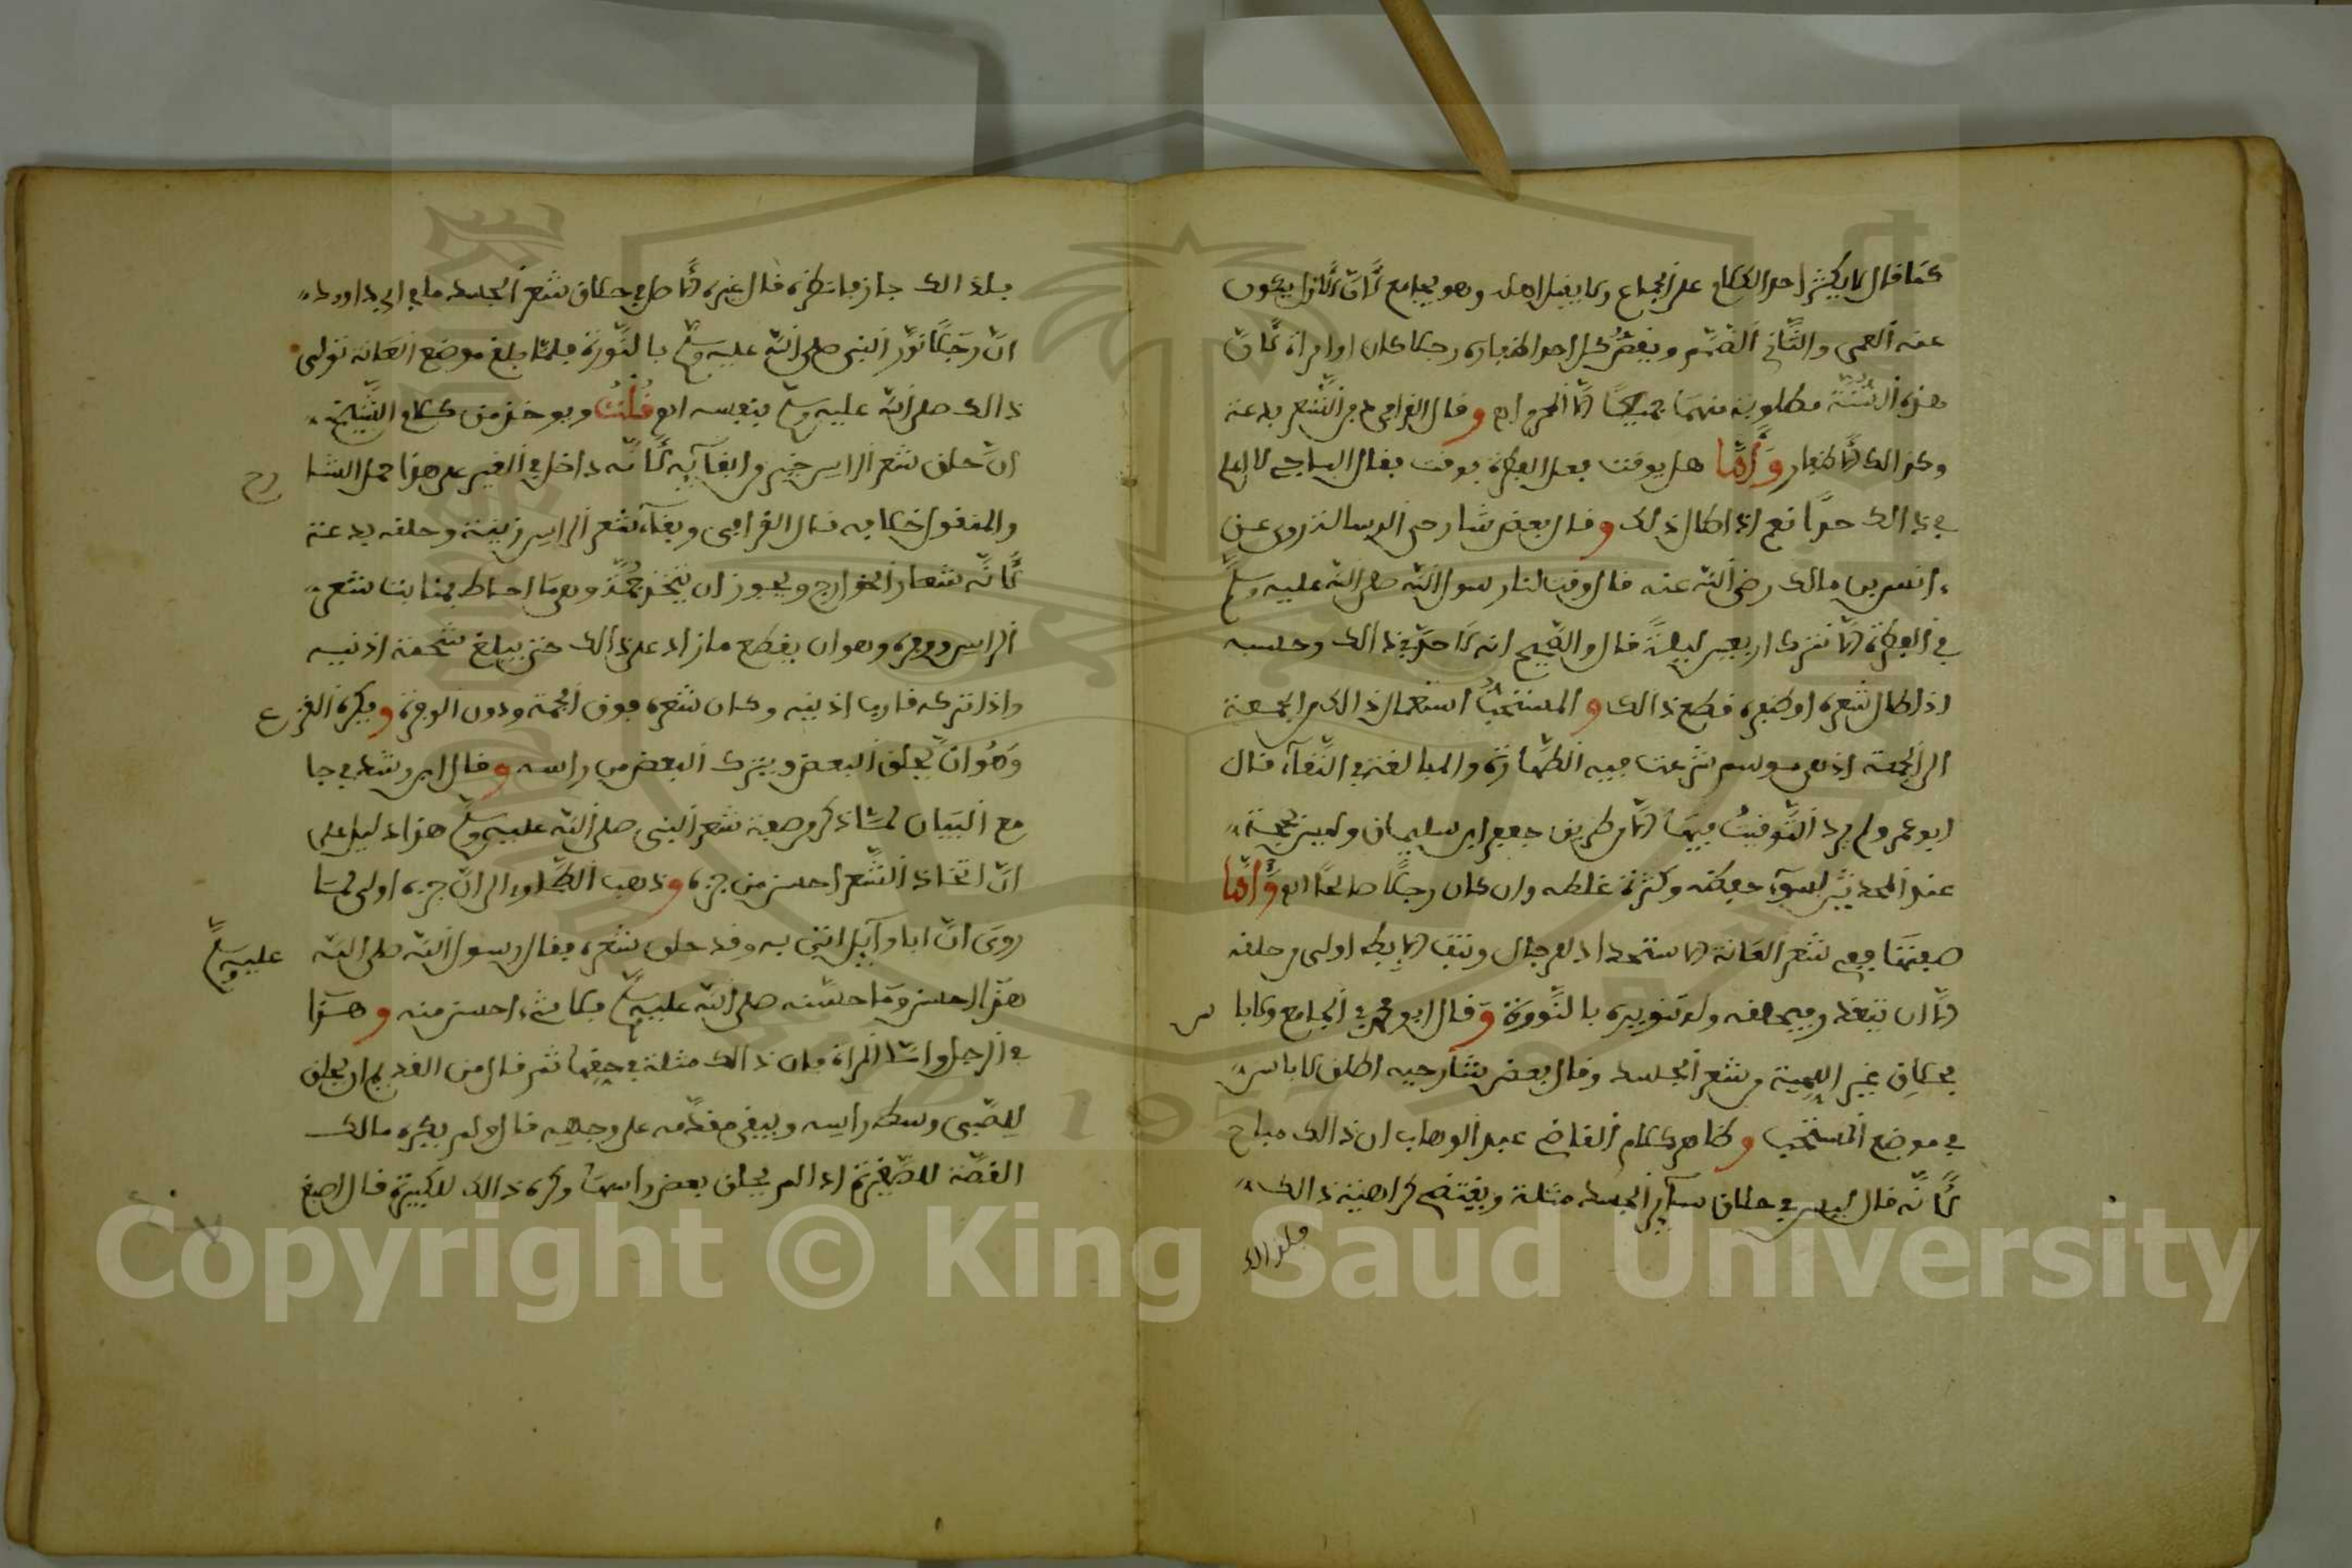 كما قال لا يكثر احد الكلام على الجماع ولا يقبل اهله وهو يجامع لأنّ الاول يكون
عنه العمى والثاني الصمم ويقص كل احد اظفاره رجلا كان او امراة لأنّ
هذه السنة مطلوبة منهما جميعا الا المحرم اهـ وقال القرافي دفن الشعر بدعة
وكذالك الأظفار وأما هل يوقت بعد الفطرة بوقت فقال الباجي لا اعلم
في ذالك حدّا نعم اذا طال ذلك وقال بعض شارحي الرسالة روي عن
انس بن مالك رضي الله عنه قال وقت لنا رسول الله صلى الله عليه وسلم
في الفطرة الا نترك اربعين ليلة قال والصحيح انه لا حدّ في ذالك وحسبه
اذا طال شعره او ظفره قطع ذالك والمستحبّ استعمال ذالك من الجمعة
الى الجمعة اذ هي موسم شرعت فيه الطهارة والمبالغة في النقاء قال
ابو عمر ولم يرد التوقيت فيها الا من طريق جعفر ابن سليمان وليس بحجة
عند المحدثين لسوء حفظه وكثرة غلطه وان كان رجلا صالحا اهـ وأما
صفتها ففي شعر العانة الاستحداد للرجال ونتف الابط اولى من حلقه
الا ان يتعذر فيحلقه وله تنويره بالنّورة وقال ابو عمر في الجامع ولا باس
بحلاق غير اللحية من شعر الجسد وقال بعض شارحيه اطلق لا باس
في موضع المستحب وظاهر كلام القاضي عبد الوهاب ان ذالك مباح
لأنّه قال ليس في حلاق سآئر الجسد مثلة ويقتضي كراهية ذالك
فلذالك
فلذالك جاز فانظره قال غيره الأصل في حلاق شعر الجسد ما في ابي داوود
انّ رجلا نوّر النبي صلى الله عليه وسلم بالنّورة فلمّا بلغ موضع العانة تولى
ذالك صلى الله عليه وسلم بنفسه اهـ قلت ويوخذ من كلام الشيخ
انّ حلق شعر الراس خير وابقآيه لأنّه داخل في الغير على هذا حمل الشارح
والمنقول خلافه قال القرافي وبقآء شعر الراس زينة وحلقه بدعة
لأنّه شعار الخوارج ويجوز ان يتخذ جمّة وهي ما احاط بمنابت شعر
الراس ووفرة وهو ان يقطع ما زاد على ذالك حتى يبلغ شحمة اذنيه
واذا تركه قارب اذنيه وكان شعره فوق الجمة ودون الوفرة ويكره القزع
وهو ان يحلق البعض ويترك البعض من راسه وقال ابن رشد في جا
مع البيان لمّا ذكر صفة شعر النبي صلى الله عليه وسلم هذا دليل على
انّ اتخاذ الشّعر احسن من جزه وذهب الطحاوي الى انّ جزه اولى لما
روى انّ ابا وآئل اتى به وقد حلق شعره فقال رسول الله صلى الله عليه وسلم
هذا احسن وما حسّنه صلى الله عليه وسلم فلا شيء احسن منه وهذا
في الرجل وامّا المراة فان ذالك مثلة في حقها ثم قال من القديم ان يحلق
للصّبي وسط راسه ويبقى مقدّمه على وجهه قال ولم يكره مالك
القصّة للصّغيرة اذا لم يحلق بعض راسها وكره ذالك للكبيرة قال اصبغ